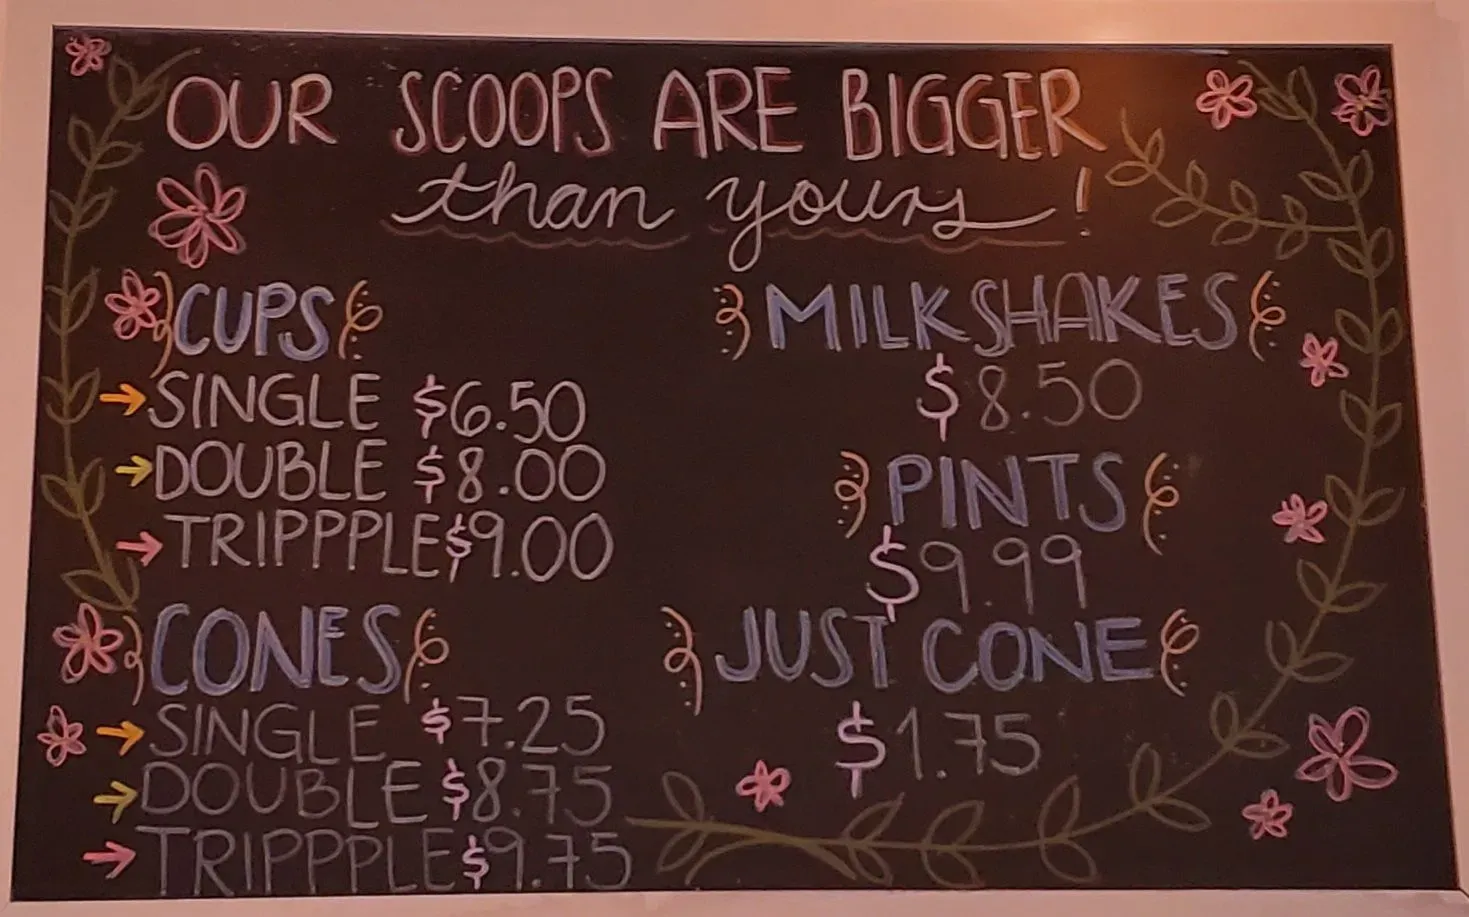 OUR SCOOPS ARE BIGGER
than yours!
CUPS
SINGLE $6.50
DOUBLE $8.00
TRIPPPLE $9.00
CONES
SINGLE $7.25
DOUBLE $8.75
TRIPPPLE $9.75
MILKSHAKES
$8.50
PINTS
$9.99
JUST CONE
$1.75